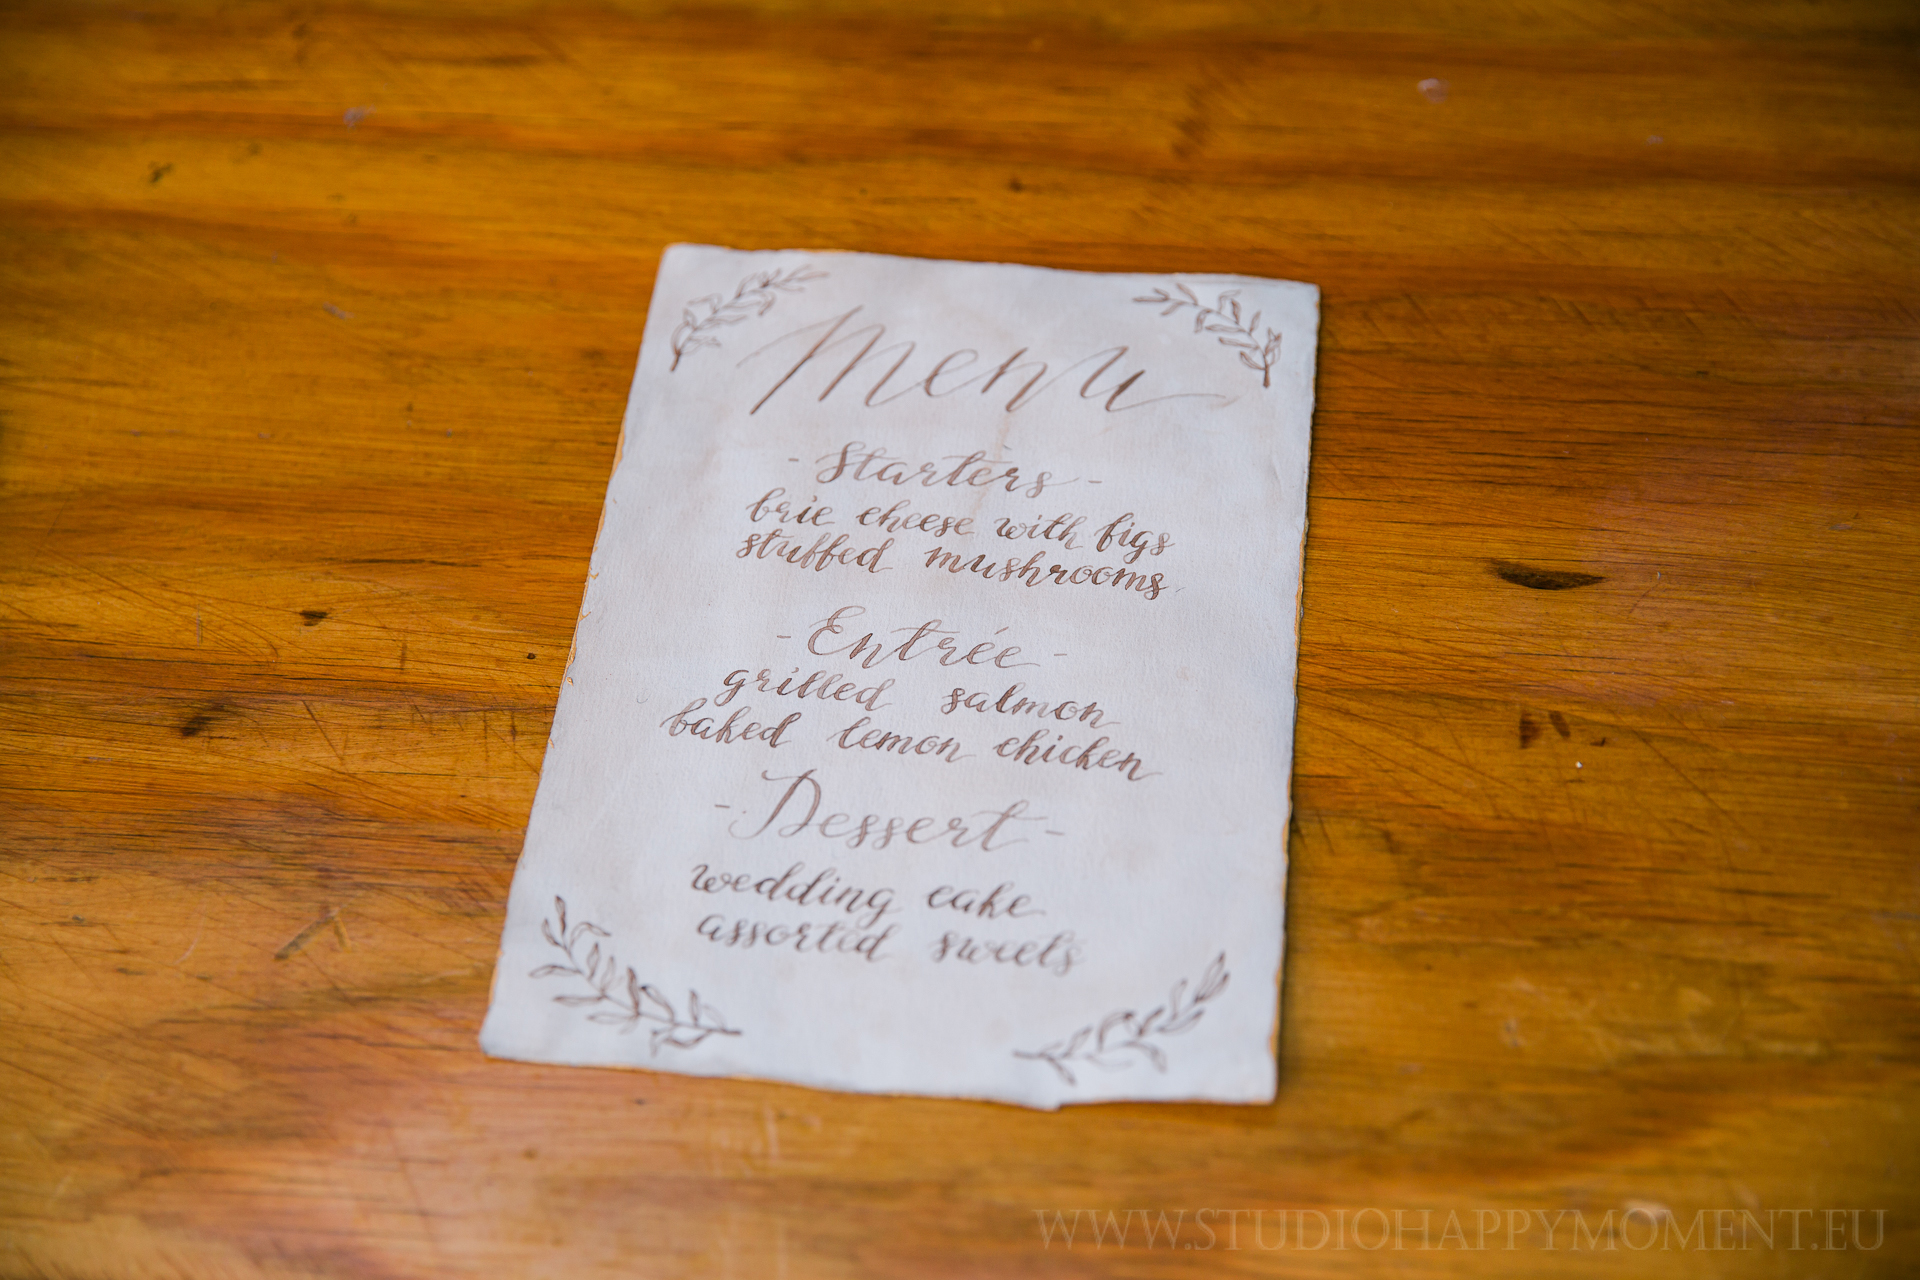 Menu
- Starters -
brie cheese with figs
stuffed mushrooms
- Entrée -
grilled salmon
baked lemon chicken
- Dessert -
wedding cake
assorted sweets
WWW.STUDIOHAPPYMOMENT.EU